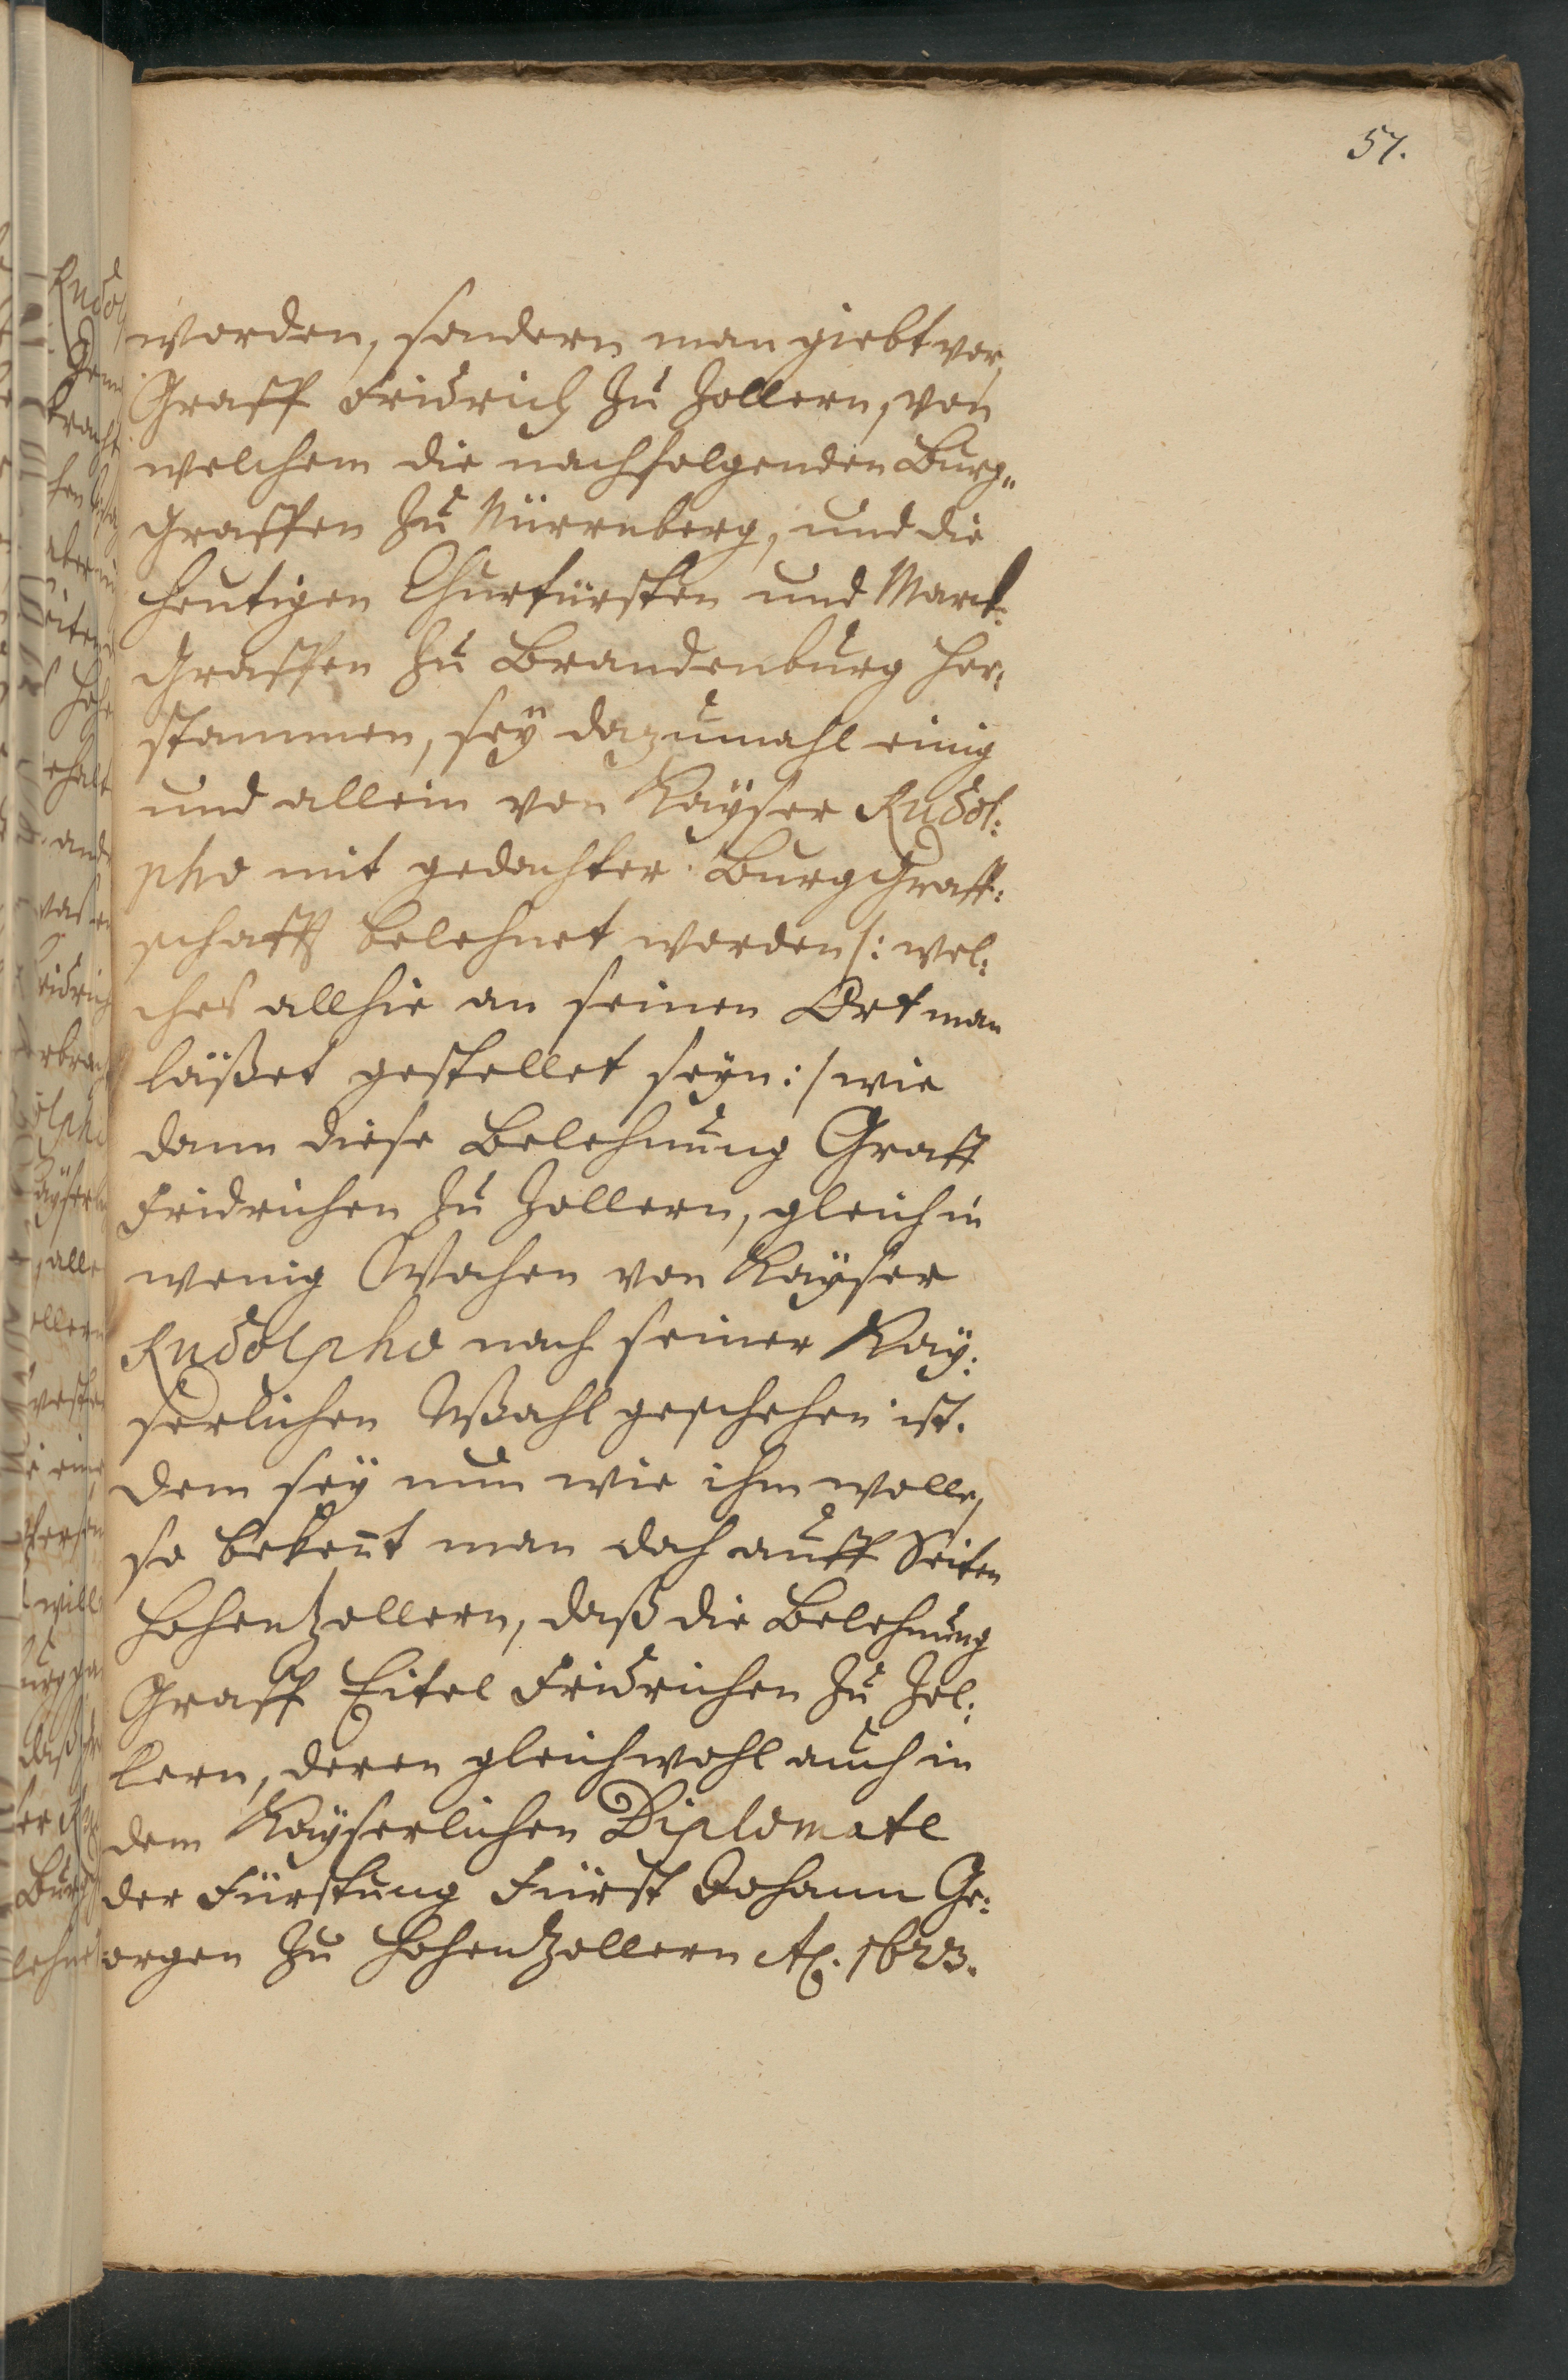 57.
worden, sondern man giebt vor,
Graff Fridrich zu Zollern, von
welchem die nachfolgenden Burg„
Graffen zu Nürrnberg, und die
heutigen Churfürsten und Marck:
Graffen zu Brandenburg her:
stammen, seÿ dazumahl einig
und allein von Kaÿser Rudol:
pho mit gedachter BurgGraff:
schafft belehnet worden /: wel:
ches allhie an seinen Ort man
läßet gestellet seÿn :/ wie
dann diese Belehnung Graff
Fridrichen zu Zollern, gleich in
wenig Wochen von Kaÿser
Rudolpho nach seiner Kaÿ:
serlichen Wahl geschehen ist.
Dem seÿ nun wie ihm wolle,
so bekeñt man doch auff Seiten
Hohenzollern, daß die Belehnung
Graff Eitel Fridrichen zu Zol:
lern, deren gleichwohl auch in
dem Kaÿserlichen Diplomate
der Fürstung Fürst Johann Ge:
orgen zu Hohenzollern Aõ. 1623.